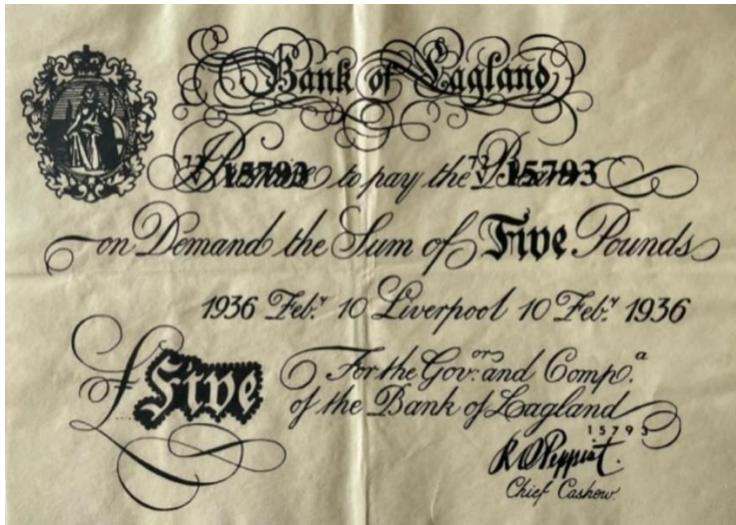 Bank of Lagland
15793 to pay the 15793
on Demand the Sum of Five Pounds
1936 Feb.ʸ 10 Liverpool 10 Feb.ʸ 1936
£ Five
For the Gov.ᵒʳ and Comp.ᵃ
of the Bank of Lagland
15793
Chief Cashow.